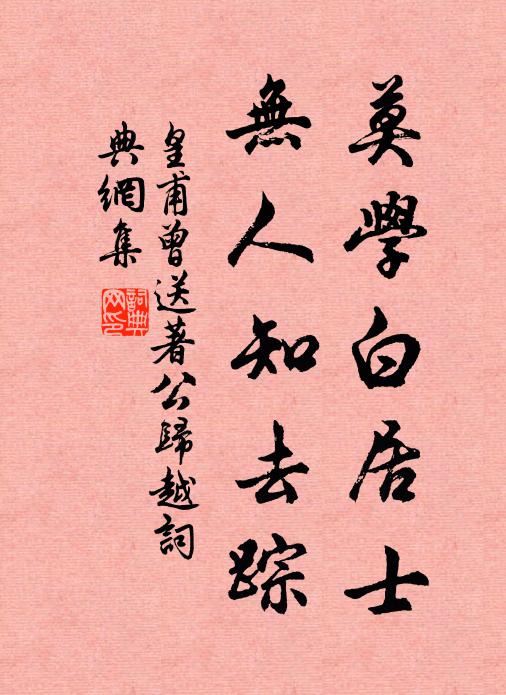 莫學白居士
無人知去踪
皇甫曾送著公歸越詞
典網集
詞典
网印